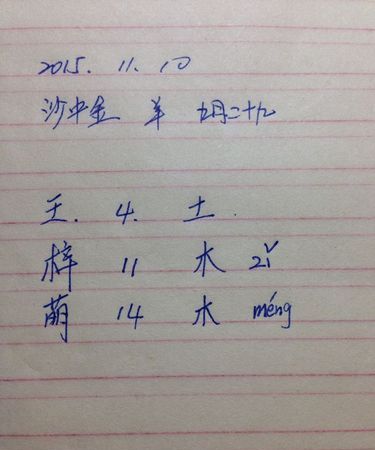 2015. 11. 10
沙中金 羊 九月二十九
王. 4. 土.
梓 11 木 zǐ
萌 14 木 méng